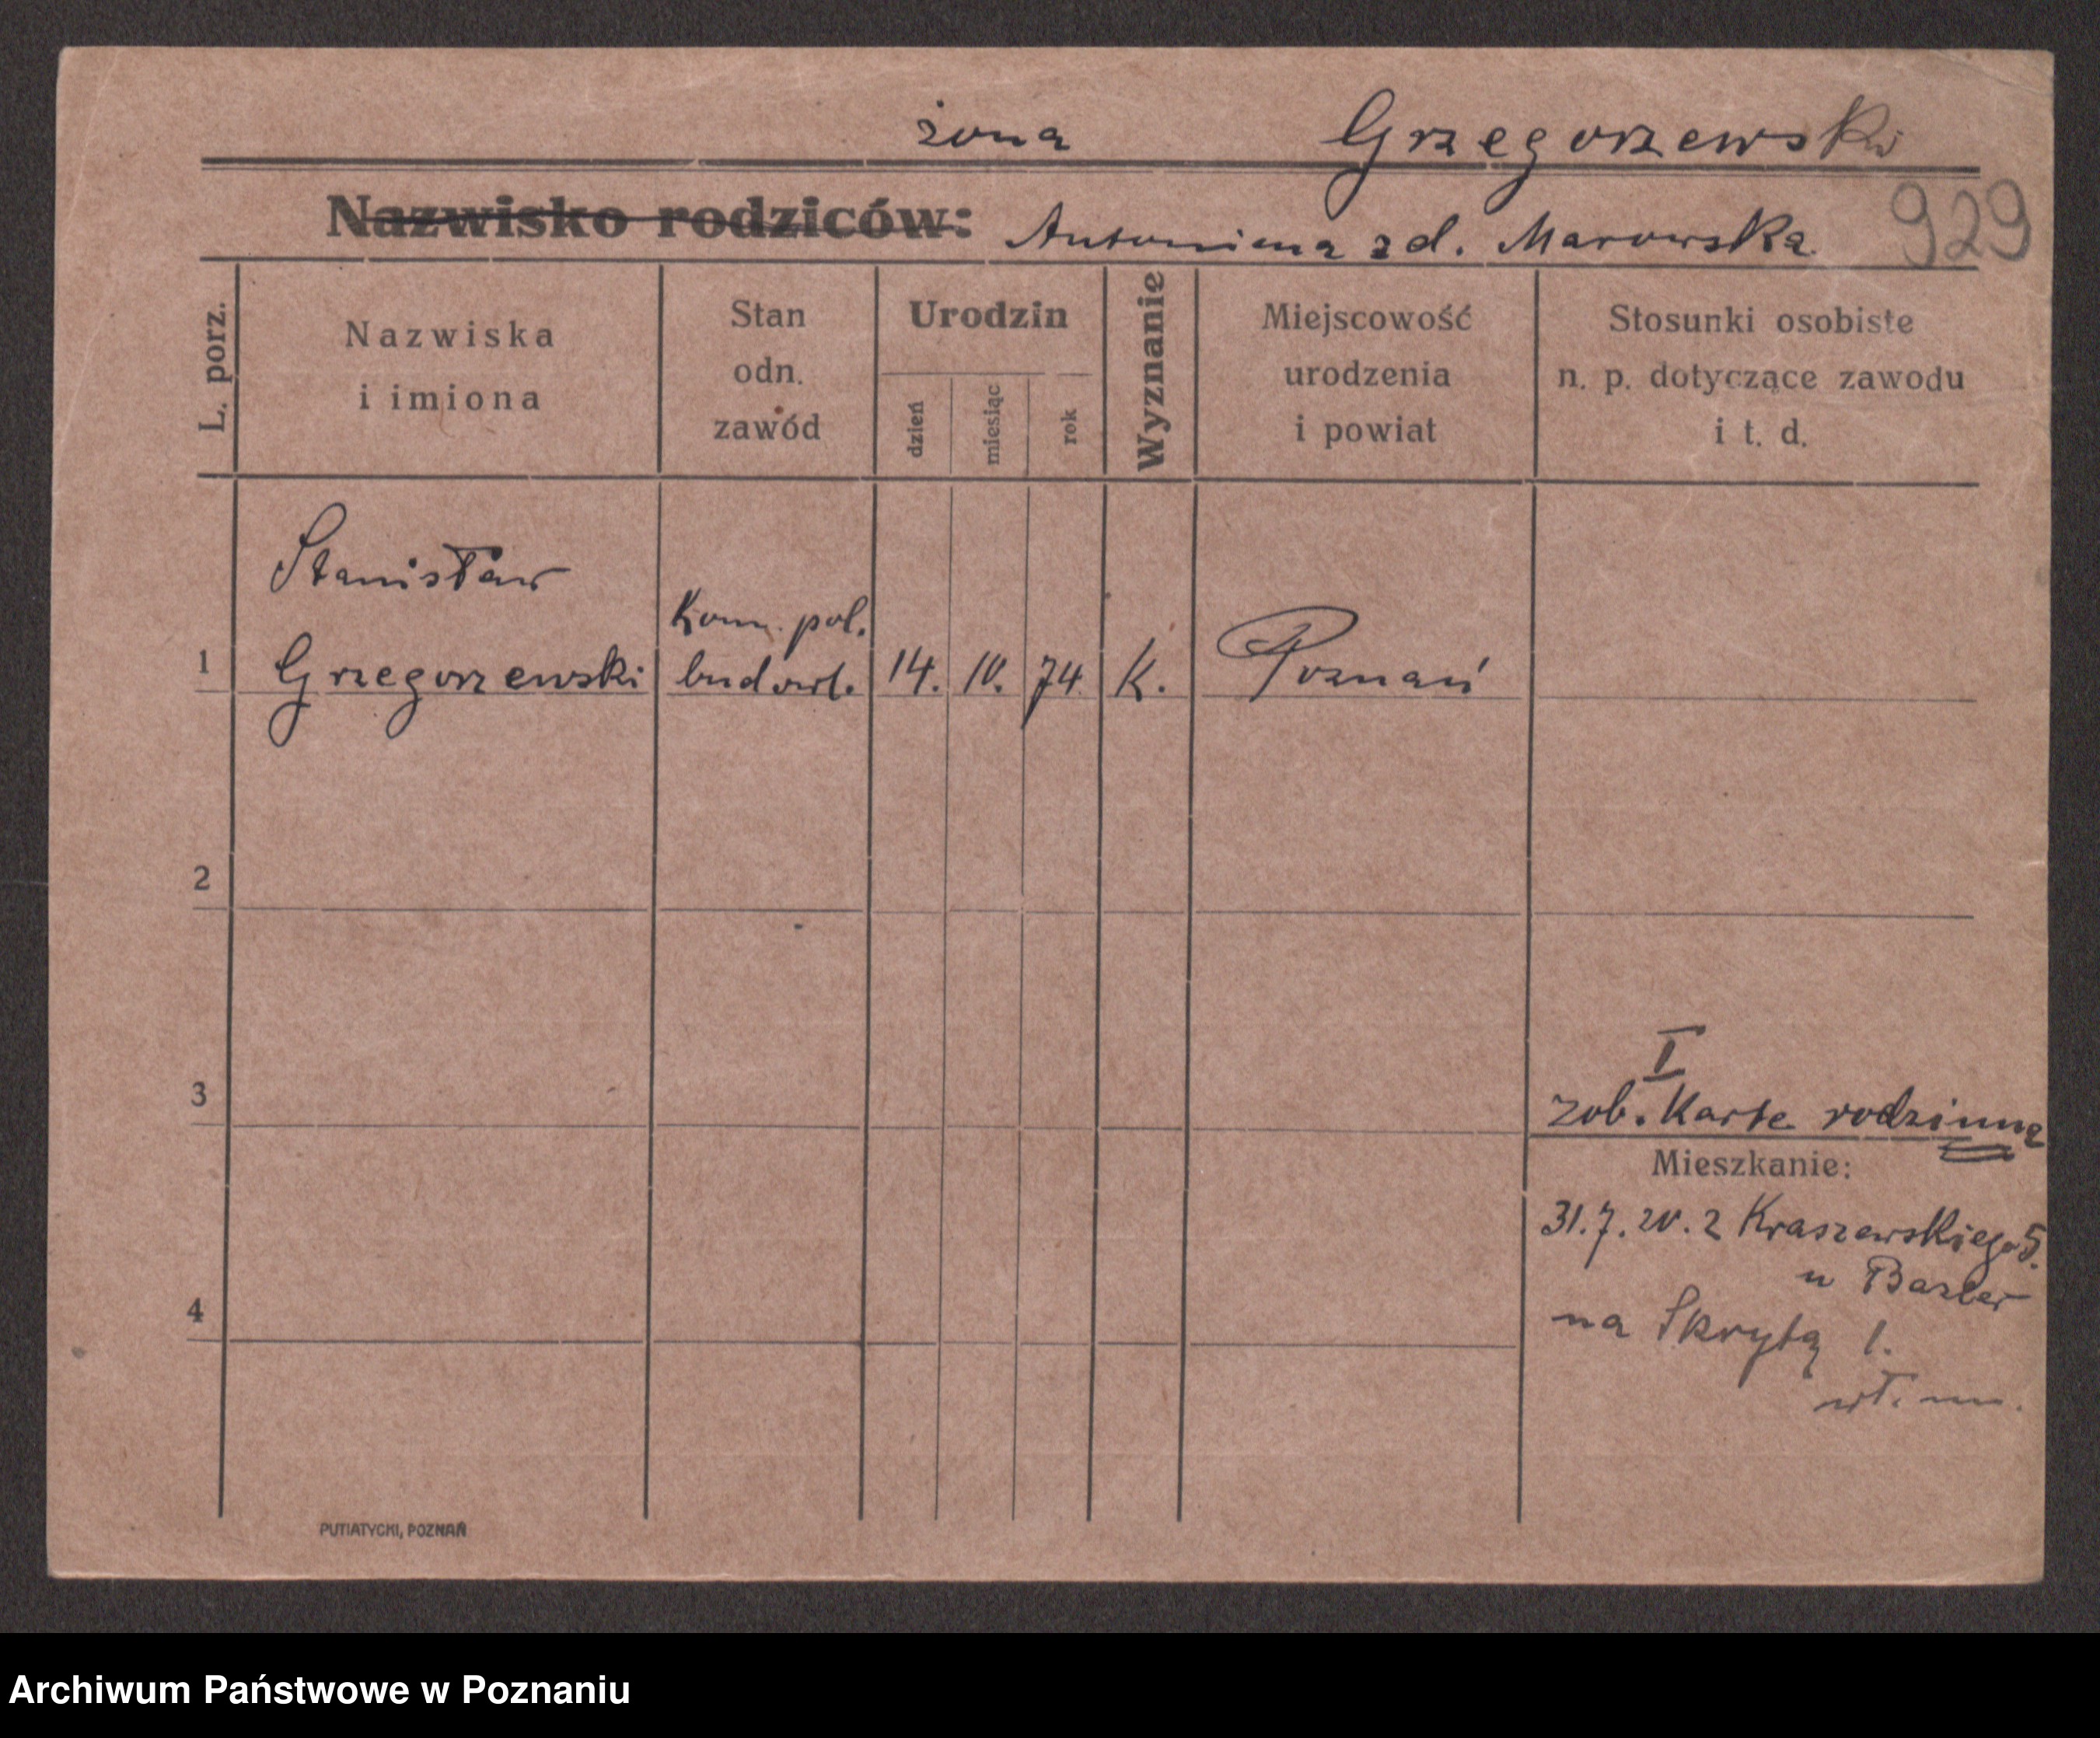 żona Grzegorzewski
Nazwisko rodziców: Antonina z d. Marowska
929
L. porz.
Nazwiska
i imiona
Stan
odn.
zawód
Urodzin
dzień
miesiąc
rok
Wyznanie
Miejscowość
urodzenia
i powiat
Stosunki osobiste
n. p. dotyczące zawodu
i t. d.
Stanisław
Kom. pol.
1 Grzegorzewski budowl. 14. 10. 74 K. Poznań
2
3
I
zob. Kartę rodzinną
Mieszkanie:
31.7.20. z Kraszewskiego 5.
u Bazler
4
na Skrytą 1.
wł. m.
PUTIATYCKI, POZNAŃ
Archiwum Państwowe w Poznaniu